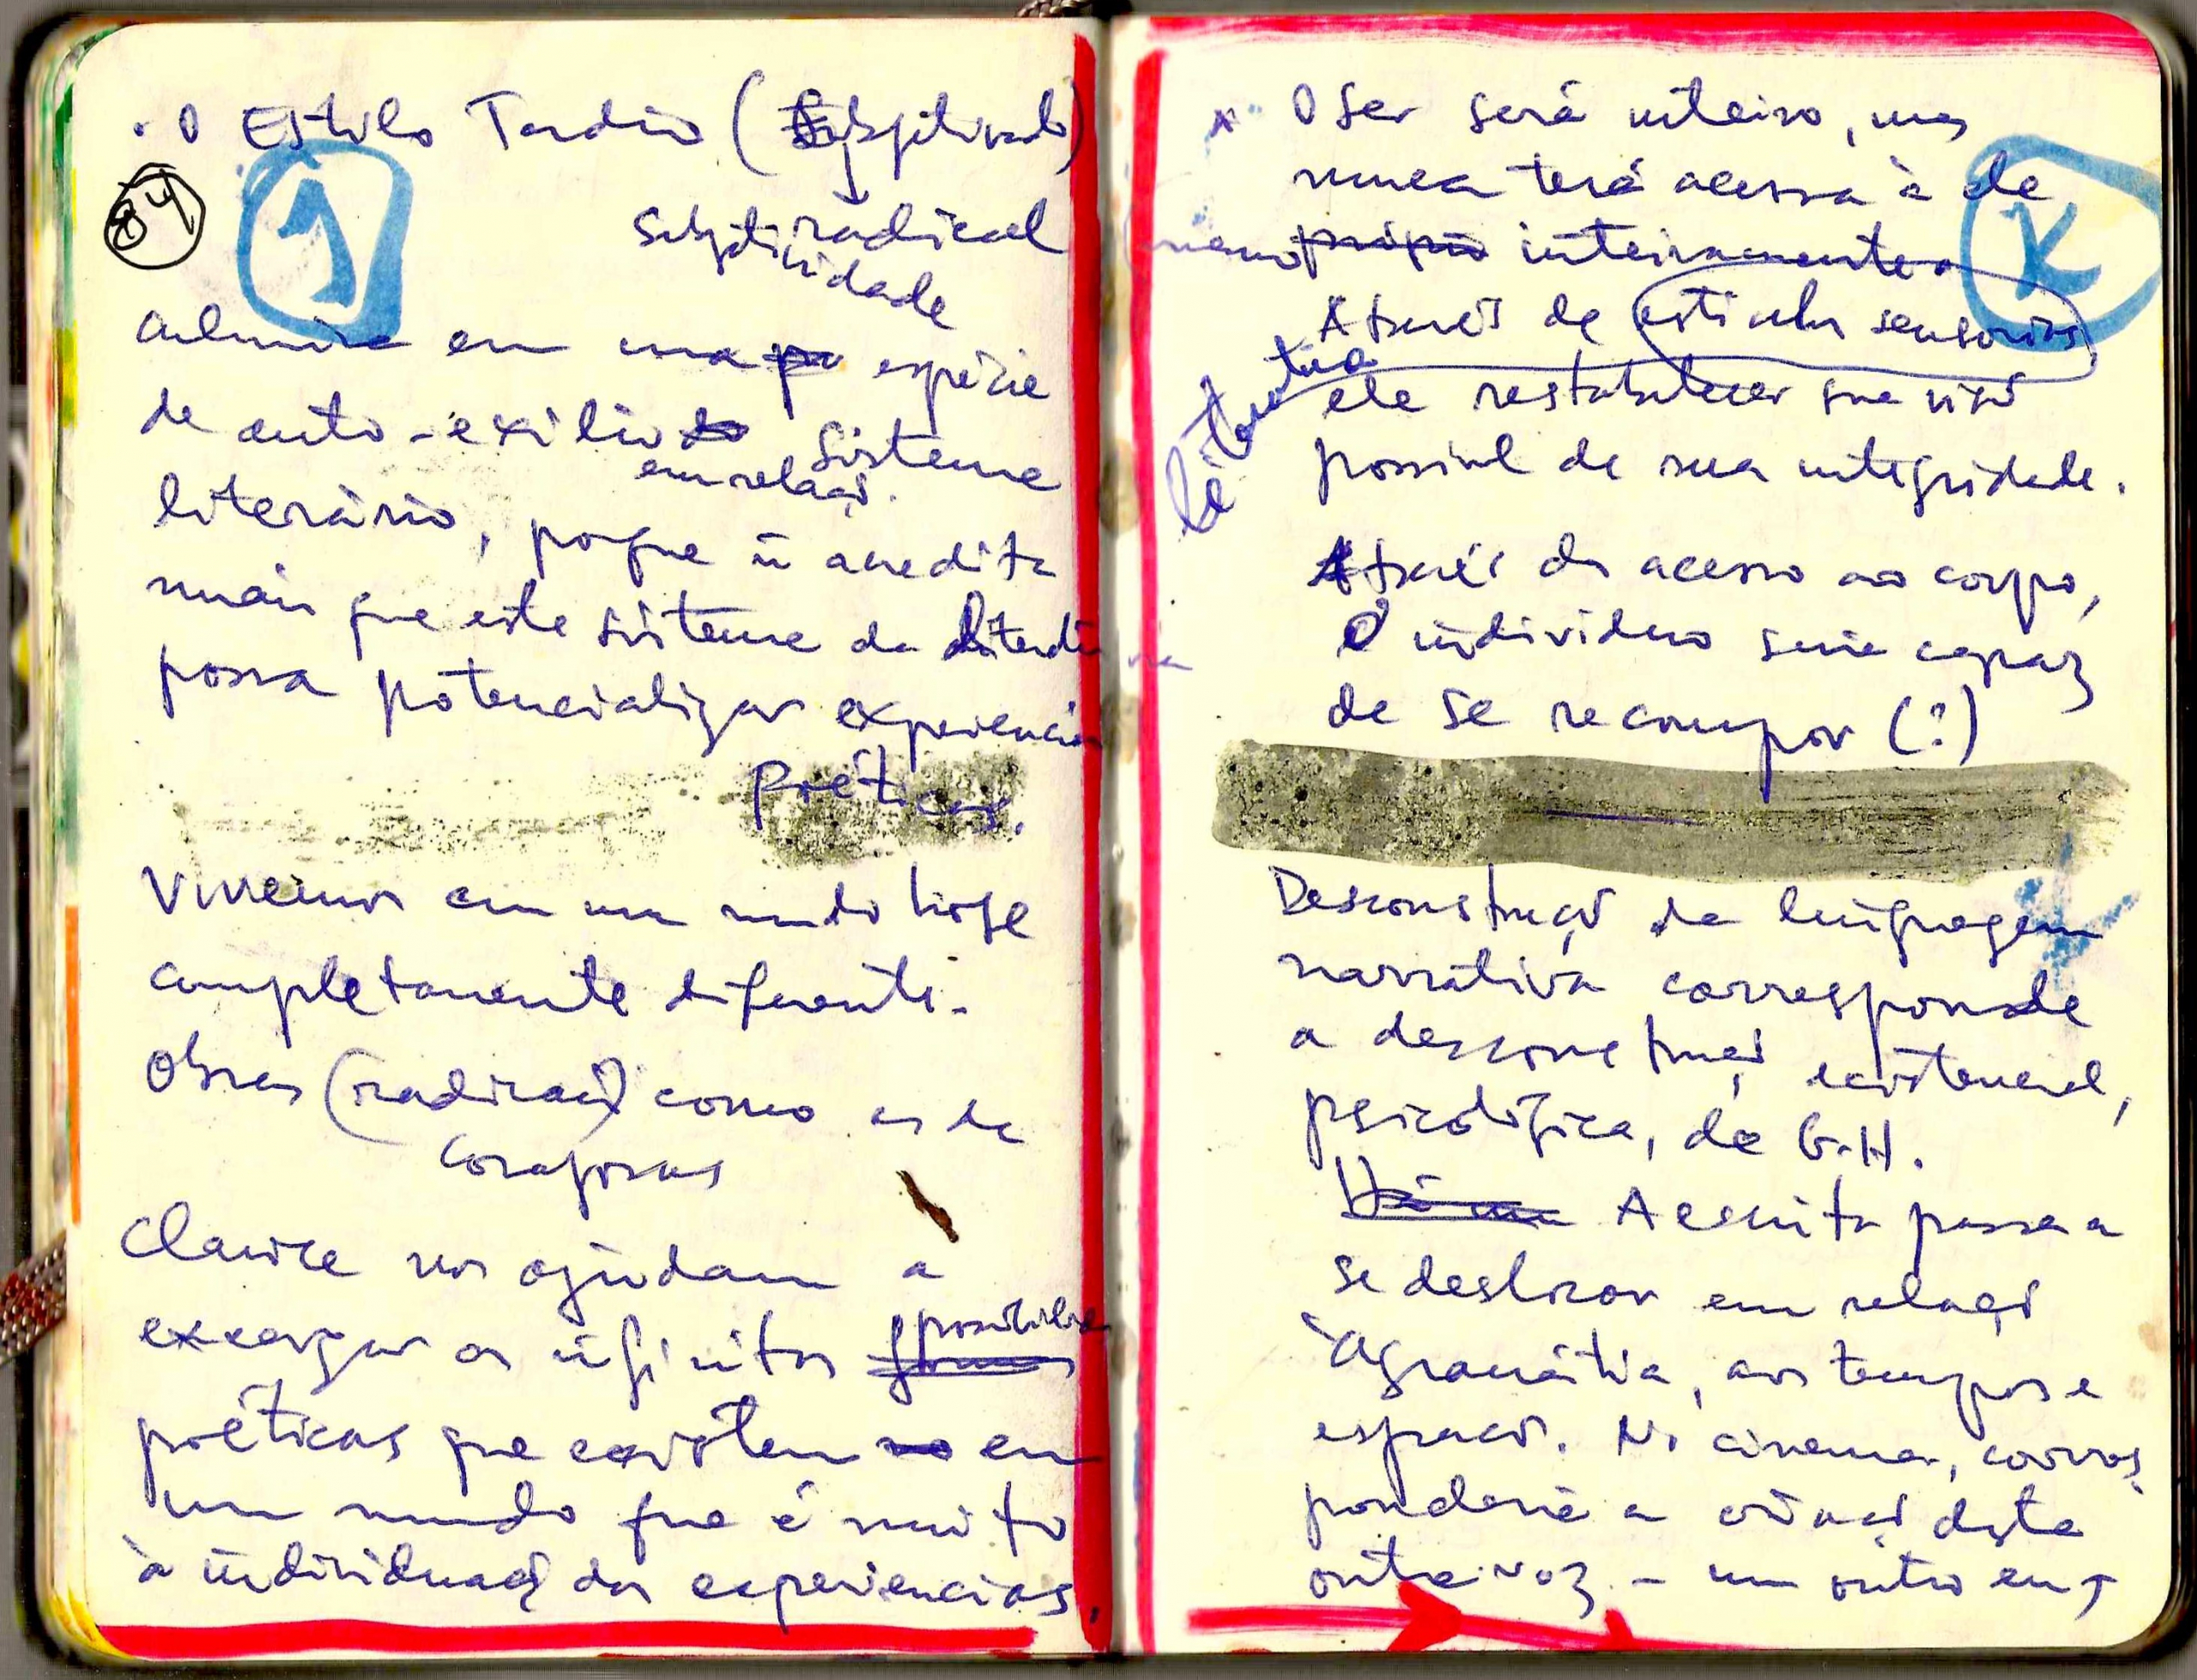 · O Estilo Tardio (Subjetivado)
84
J
radical
subjetividade
culmina em uma espécie
de auto-exílio
em relação sistema
literário, porque ñ acredita
mais que este sistema da Literatura
possa potencializar experiencias
Poéticas.
Vivemos em um mundo hoje
completamente diferente.
Obras (radicais) como as de
corajosas
Clarice nos ajudam a
enxergar as infinitas possibilidades
poéticas que existem em
um mundo que é muito
à individuação das experiencias,
* O Ser será inteiro, mas
nunca terá acesso à ele
K
mesmo inteiramente.
Através de estímulos sensorias
literatura
ele restabelecer sua visão
possível de sua integridade.
Através do acesso ao corpo,
O individuo seria capaz
de se recompor (?)
Desconstrução da linguagem
narrativa corresponde
a desconstrução existencial,
psicológica, de G.H.
A escrita passa a
se deslocar em relação
à gramática, aos tempos e
espaços. No cinema, corres
ponderia a criação desta
outra voz - um outro eu,